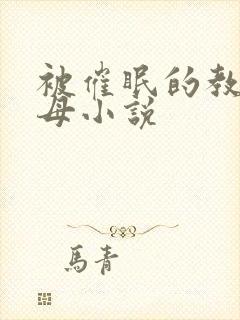 被催眠的教
母小説
馬青